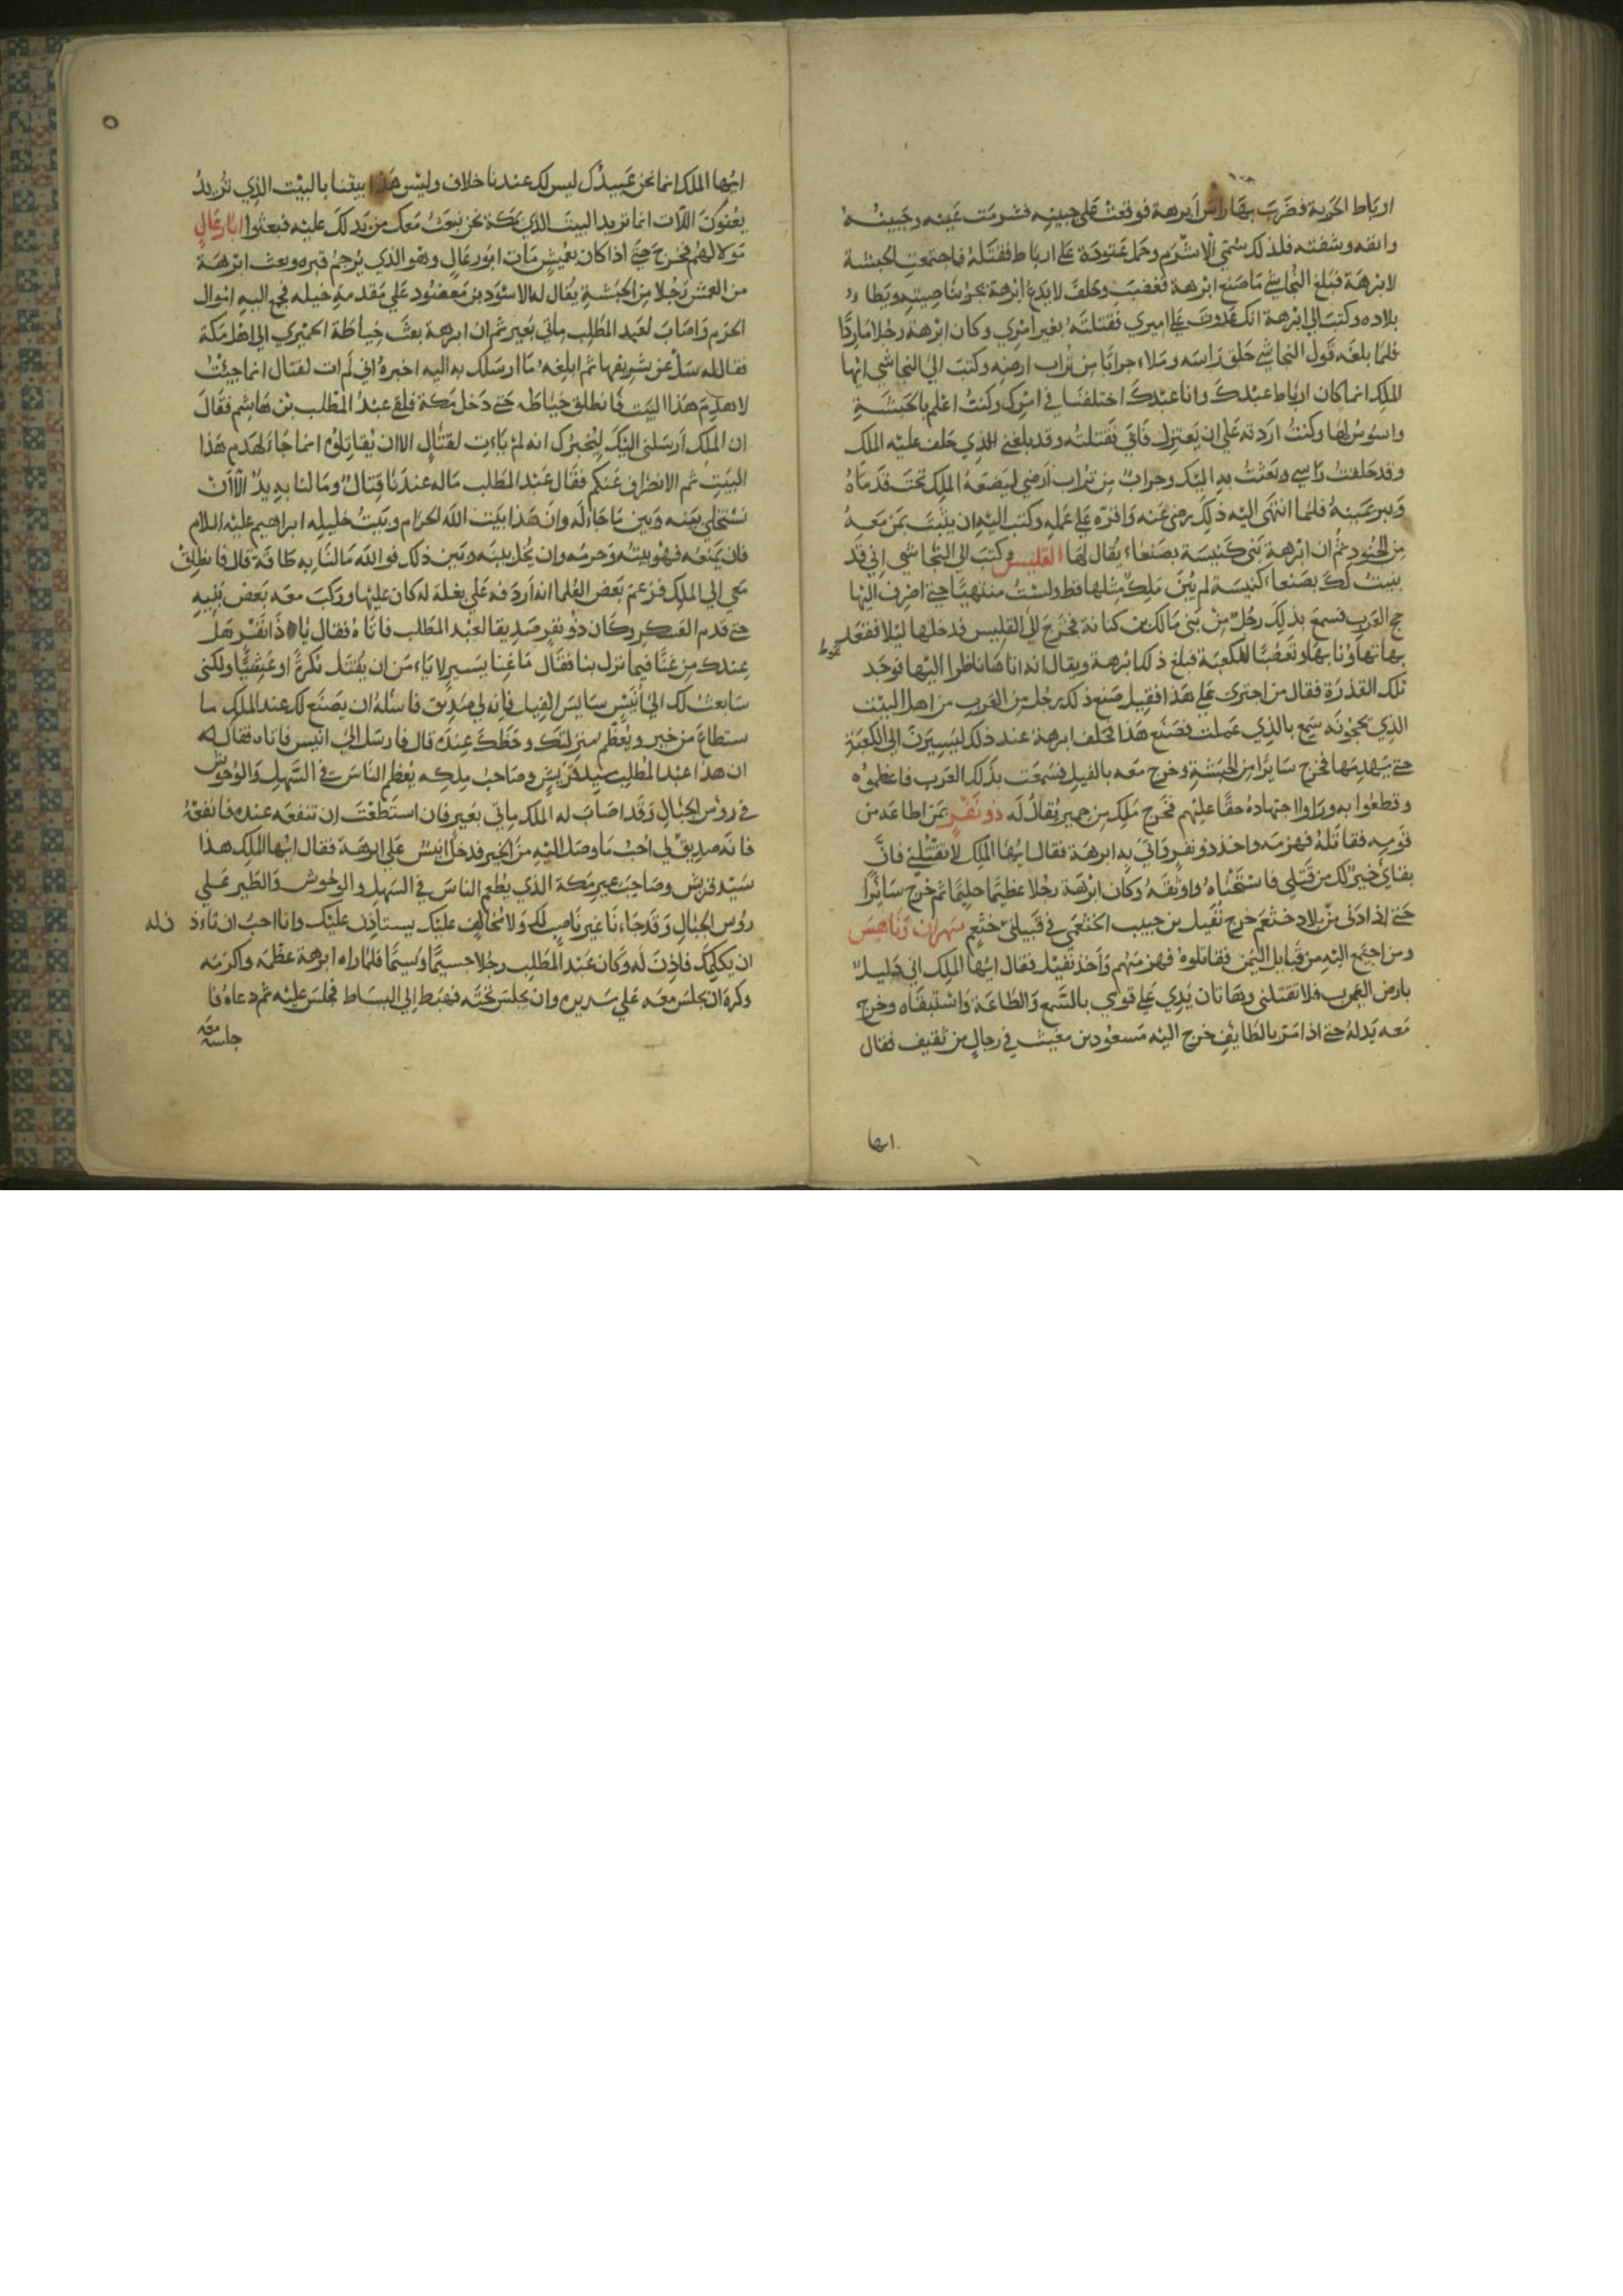 ارباط الحربة فضرب بها راس ابرهة فوقعت على جبينه فشرمت عينه وجبينه
وانفه وشفته فلذلك سمّي الاشرم وحمل عتودة على ارباط فقتله فاجتمعت الحبشة
لابرهة فبلغ النجاشي ما صنع ابرهة فغضب وحلف لا يدع ابرهة حتى يجز ناصيته ويطاء
بلاده وكتب الى ابرهة انك عدوت على اميري فقتلته بغير امري وكان ابرهة رجلا ماردًا
فلما بلغه قول النجاشي حلق راسه وملاء جرابا من تراب ارضه وكتب الى النجاشي ايها
الملك انما كان ارباط عبدك وانا عبدك اختلفنا في امرك وكنت اعلم بالحبشة
واسوس لها وكنت اردته على ان يعتزل فابى فقتلته وقد بلغني الذي حلف عليه الملك
وقد حلقت راسي وبعثت به اليك وجراب من تراب ارضي ليضعه الملك تحت قدماه
ويبر يمينه فلما انتهى اليه ذلك رضي عنه واقره على عمله وكتب اليه ان يثبت بمن معه
من الجنود ثم ان ابرهة بنى كنيسة بصنعاء يقال لها القليس وكتب الى النجاشي اني قد
بنيت لك بصنعا كنيسة لم يبن ملك مثلها قط ولست منتهيا حتى اصرف اليها
حج العرب فسمع بذلك رجل من بني مالك بن كنانة فخرج الى القليس فدخلها ليلا فقعد
بها تهاونا بها وتعصبا للكعبة فبلغ ذلك ابرهة ويقال انه اتاها ناظرا اليها فوجد
تلك القذرة فقال من اجترى على هذا فقيل صنع ذلك رجل من العرب من اهل البيت
الذي يحجونه سمع بالذي عملت فصنع هذا فحلف ابرهة عند ذلك ليسيرن الى الكعبة
حتى يهدمها فخرج سايرا من الحبشة وخرج معه بالفيل فسمعت بذلك العرب فاعظموه
وقطعوا به وراوا جهاده حقا عليهم فخرج ملك من حمير يقال له ذو نفر بمن اطاعه من
قومه فقاتله فهزمه واخذ ذو نفر واتى به ابرهة فقال ايها الملك لا تقتلني فان
بقاي خير لك من قتلي فاستحياه واوثقه وكان ابرهة رجلا عظيما حليما ثم خرج سايرا
حتى اذا دنى من بلاد خثعم خرج نفيل بن حبيب الخثعمي في قبيلتي خثعم شهران وناهس
ومن اجتمع اليه من قبايل اليمن فقاتلوه فهزمهم واخذ نفيل فقال ايها الملك اني دليل
بارض العرب فلا تقتلني وهاتان يدي على قومي بالسمع والطاعة واستبقاه وخرج
معه يدله حتى اذا مر بالطايف خرج اليه مسعود بن مغيث في رجال من ثقيف فقال
ايها
٥
ايها الملك انما نحن عبيدك ليس لك عندنا خلاف وليس هذا بيتنا بالبيت الذي تريد
يعنون اللات انما تريد البيت الذي بمكة نحن نبعث معك من يدلك عليه فبعثوا ابا رغال
مولا لهم فخرج حتى اذا كان بغميس مات ابو رغال وهو الذي يرجم قبره وبعث ابرهة
من الغمس رجلا من الحبشة يقال له الاسود بن مقصود على مقدمة خيله فجمع اليه اموال
الحرم واصاب لعبد المطلب ماتي بعير ثم ان ابرهة بعث حياطة الحميري الى اهل مكة
فقال له سل عن شريفها ثم ابلغه ما ارسلك به اليه اخبره اني لم ات لقتال انما جيئت
لاهدم هذا البيت فانطلق حياطه حتى دخل مكة فلقي عبد المطلب بن هاشم فقال
ان الملك ارسلني اليك ليخبرك انه لم ياءت لقتال الا ان يقاتلوه انما جاء لهدم هذا
البيت ثم الانصراف عنكم فقال عبد المطلب ماله عندنا قتال وما لنا به يد الا ان
نستخلي بينه وبين ما جاء له وان هذا بيت الله الحرام وبيت خليله ابراهيم عليه السلام
فان يمنعه فهو بيته وحرمه وان يخل بينه وبين ذلك فوالله مالنا به طاقة قال فانطلق
معي الى الملك فزعم بعض العلما انه اردفه على بغلة له كان عليها وركب معه بعض بنيه
حتى قدم العسكر وكان ذو نفر صديقا لعبد المطلب فاتاه فقال يا ذا نفر هل
عندك من غنا فيما نزل بنا فقال ما غنا يسير لا ياءمن ان يقتل بكرة او عشيا ولكني
سابعث لك الى انيس سايس الفيل فانه لي صديق فاسله ان يصنع لك عند الملك ما
ستطاع من خير ويعظم منزلتك وحظك عنده قال فارسل الى انيس فاتاه فقال له
ان هذا عبد المطلب سيد قريش وصاحب ملكه يعظم الناس في السهل والوحوش
في روس الجبال وقد اصاب له الملك ماتي بعير فان استطعت ان تنفعه عنده فانفعه
فانه صديق لي احب ما وصل اليه من الخير فدخل انيس على ابرهة فقال ايها الملك هذا
سيد قريش وصاحب عير مكة الذي يطعم الناس في السهل والوحوش والطير على
روس الجبال وقد جاءنا غير ناصب لك ولا مخالف عليك يستاذن عليك وانا احب ان تاءذن له
ان يكلمك فاذن له وكان عبد المطلب رجلا جسيما وسيما فلما راه ابرهة عظمه واكرمه
وكره ان يجلس معه على سريره وان يجلس تحته فهبط الى البساط فجلس عليه ثم دعاه فا
جلسه معه